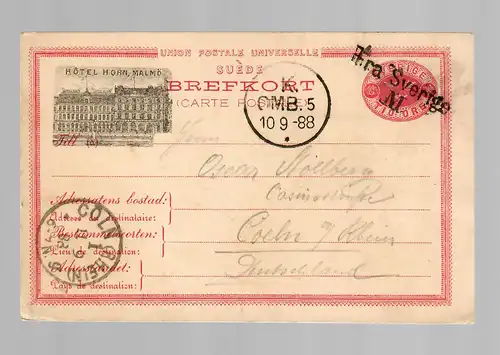 UNION POSTALE UNIVERSELLE
SUÈDE
HÔTEL HORN, MALMÖ
BREFKORT
(CARTE POSTALE)
SVERIGE
TIO ÖRE
Fra Sverige
M.
K
OMB. 5
10 9 -88
Till
Herrn
Oscar Mollberg
Casinostraße
Coeln a/Rhein
Deutschland
Adressatens bostad:
Adresse du destinataire:
Bestämmelseorten:
Lieu de destination:
Adresslandet:
Pays de destination:
CÖLN RHEIN
1